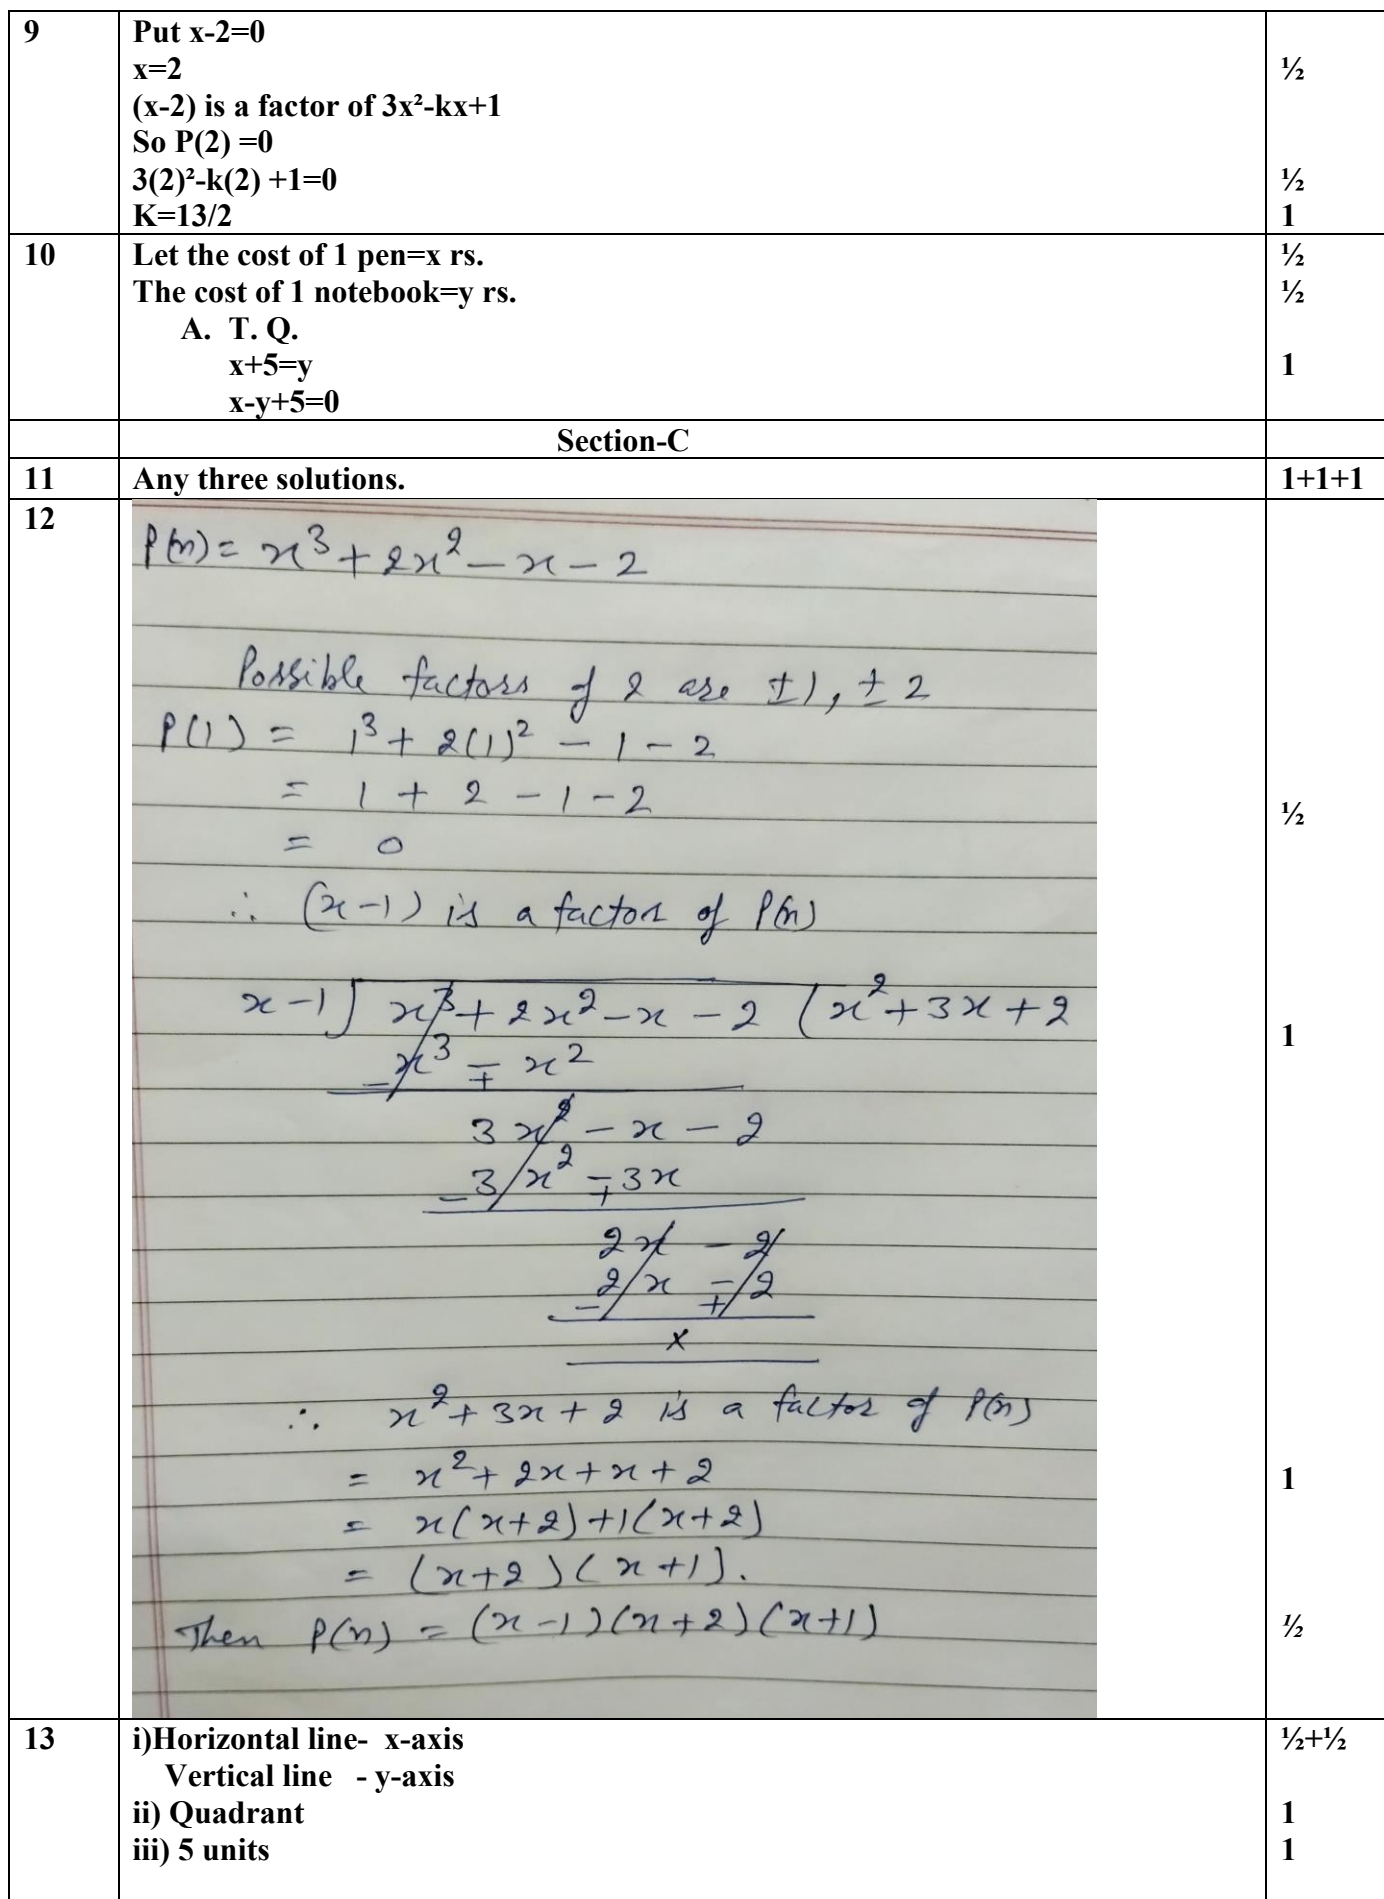 9 Put x-2=0
x=2 ½
(x-2) is a factor of 3x²-kx+1
So P(2) =0
3(2)²-k(2) +1=0 ½
K=13/2 1
10 Let the cost of 1 pen=x rs. ½
The cost of 1 notebook=y rs. ½
A. T. Q.
x+5=y 1
x-y+5=0
Section-C
11 Any three solutions. 1+1+1
12
P(x) = x³ + 2x² - x - 2
Possible factors of 2 are ±1, ± 2
P(1) = 1³ + 2(1)² - 1 - 2
= 1 + 2 - 1 - 2 ½
= 0
∴ (x-1) is a factor of P(x)
x-1) x³ + 2x² - x - 2 (x² + 3x + 2 1
-x³ ∓ x²
3x² - x - 2
-3x² ∓ 3x
2x - 2
-2x ∓ 2
x
∴ x² + 3x + 2 is a factor of P(x)
= x² + 2x + x + 2 1
= x(x+2) + 1(x+2)
= (x+2)(x+1).
Then P(x) = (x-1)(x+2)(x+1) ½
13 i)Horizontal line- x-axis ½+½
Vertical line - y-axis
ii) Quadrant 1
iii) 5 units 1